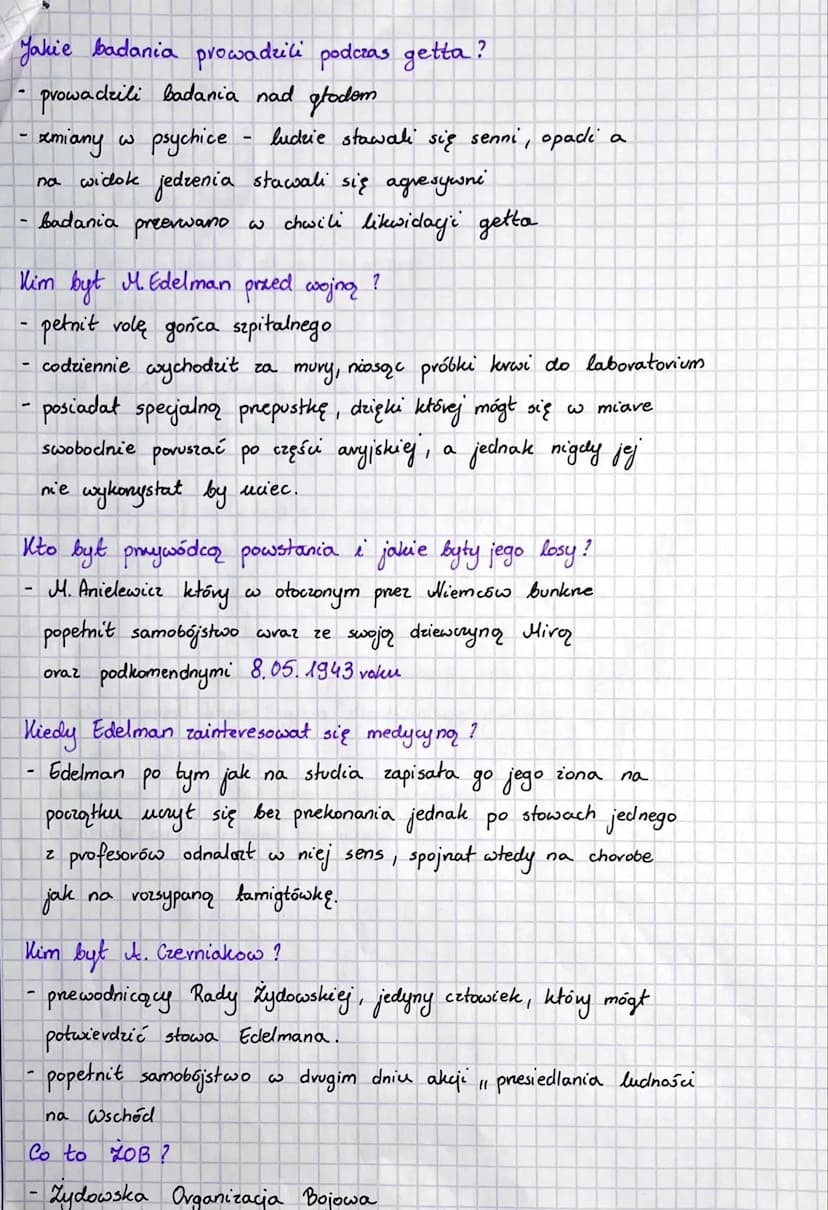 Jakie badania prowadzili podczas getta?
- prowadzili badania nad głodem
- zmiany w psychice - ludzie stawali się senni, opadli a
na widok jedzenia stawali się agresywni
- badania przerwano w chwili likwidacji getta
Kim był M. Edelman przed wojną?
- pełnił rolę gońca szpitalnego
- codziennie wychodził za mury, niosąc próbki krwi do laboratorium
- posiadał specjalną przepustkę, dzięki której mógł się w miare
swobodnie poruszać po części aryjskiej, a jednak nigdy jej
nie wykorzystał by uciec.
Kto był przywódcą powstania i jakie były jego losy?
- M. Anielewicz który w otoczonym przez Niemców bunkrze
popełnił samobójstwo wraz ze swoją dziewczyną Mirą
oraz podkomendnymi 8.05.1943 roku
Kiedy Edelman zainteresował się medycyną?
- Edelman po tym jak na studia zapisała go jego żona na
początku uczył się bez przekonania jednak po słowach jednego
z profesorów odnalazł w niej sens, spojrzał wtedy na chorobe
jak na rozsypaną łamigłówkę.
Kim był A. Czerniakow?
- przewodniczący Rady Żydowskiej, jedyny człowiek, który mógł
potwierdzić słowa Edelmana.
- popełnił samobójstwo w drugim dniu akcji „ przesiedlania ludności
na wschód
Co to ŻOB?
- Żydowska Organizacja Bojowa